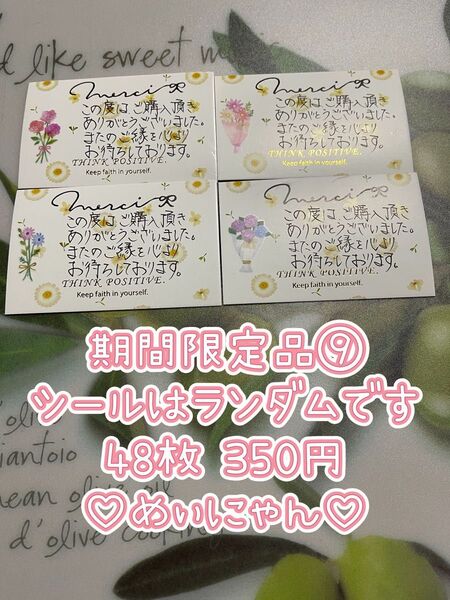 d like sweet m
merci
この度は ご購入頂き
ありがとうございました。
またのご縁を心より
お待ちしております。
THINK POSITIVE.
Keep faith in yourself.
merci
この度は ご購入頂き
ありがとうございました。
またのご縁を心より
お待ちしております。
THINK POSITIVE.
Keep faith in yourself.
merci
この度は ご購入頂き
ありがとうございました。
またのご縁を心より
お待ちしております。
THINK POSITIVE.
Keep faith in yourself.
merci
この度は ご購入頂き
ありがとうございました。
またのご縁を心より
お待ちしております。
THINK POSITIVE.
Keep faith in yourself.
期間限定品⑨
シールはランダムです
48枚 350円
♡めぃにゃん♡
d'oli
iantoio
nean olive oil
d'olive cooking